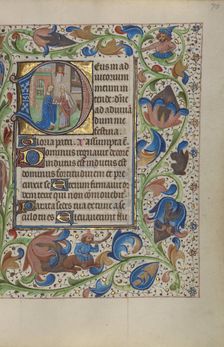 Deus in ad
iutorium
meum in
tende. dñe
ad adiuuā
dum me
festina.
Gloria patri. assumpta ē
Dominus regnauit decorē
indutus est indutus est
dominus fortitudinem et pre
cinxit se Etenim firmauit or
bem terre qui non commouebit
Parata sedes tua ex tunc a se
culo tu es Eleuauerunt flu